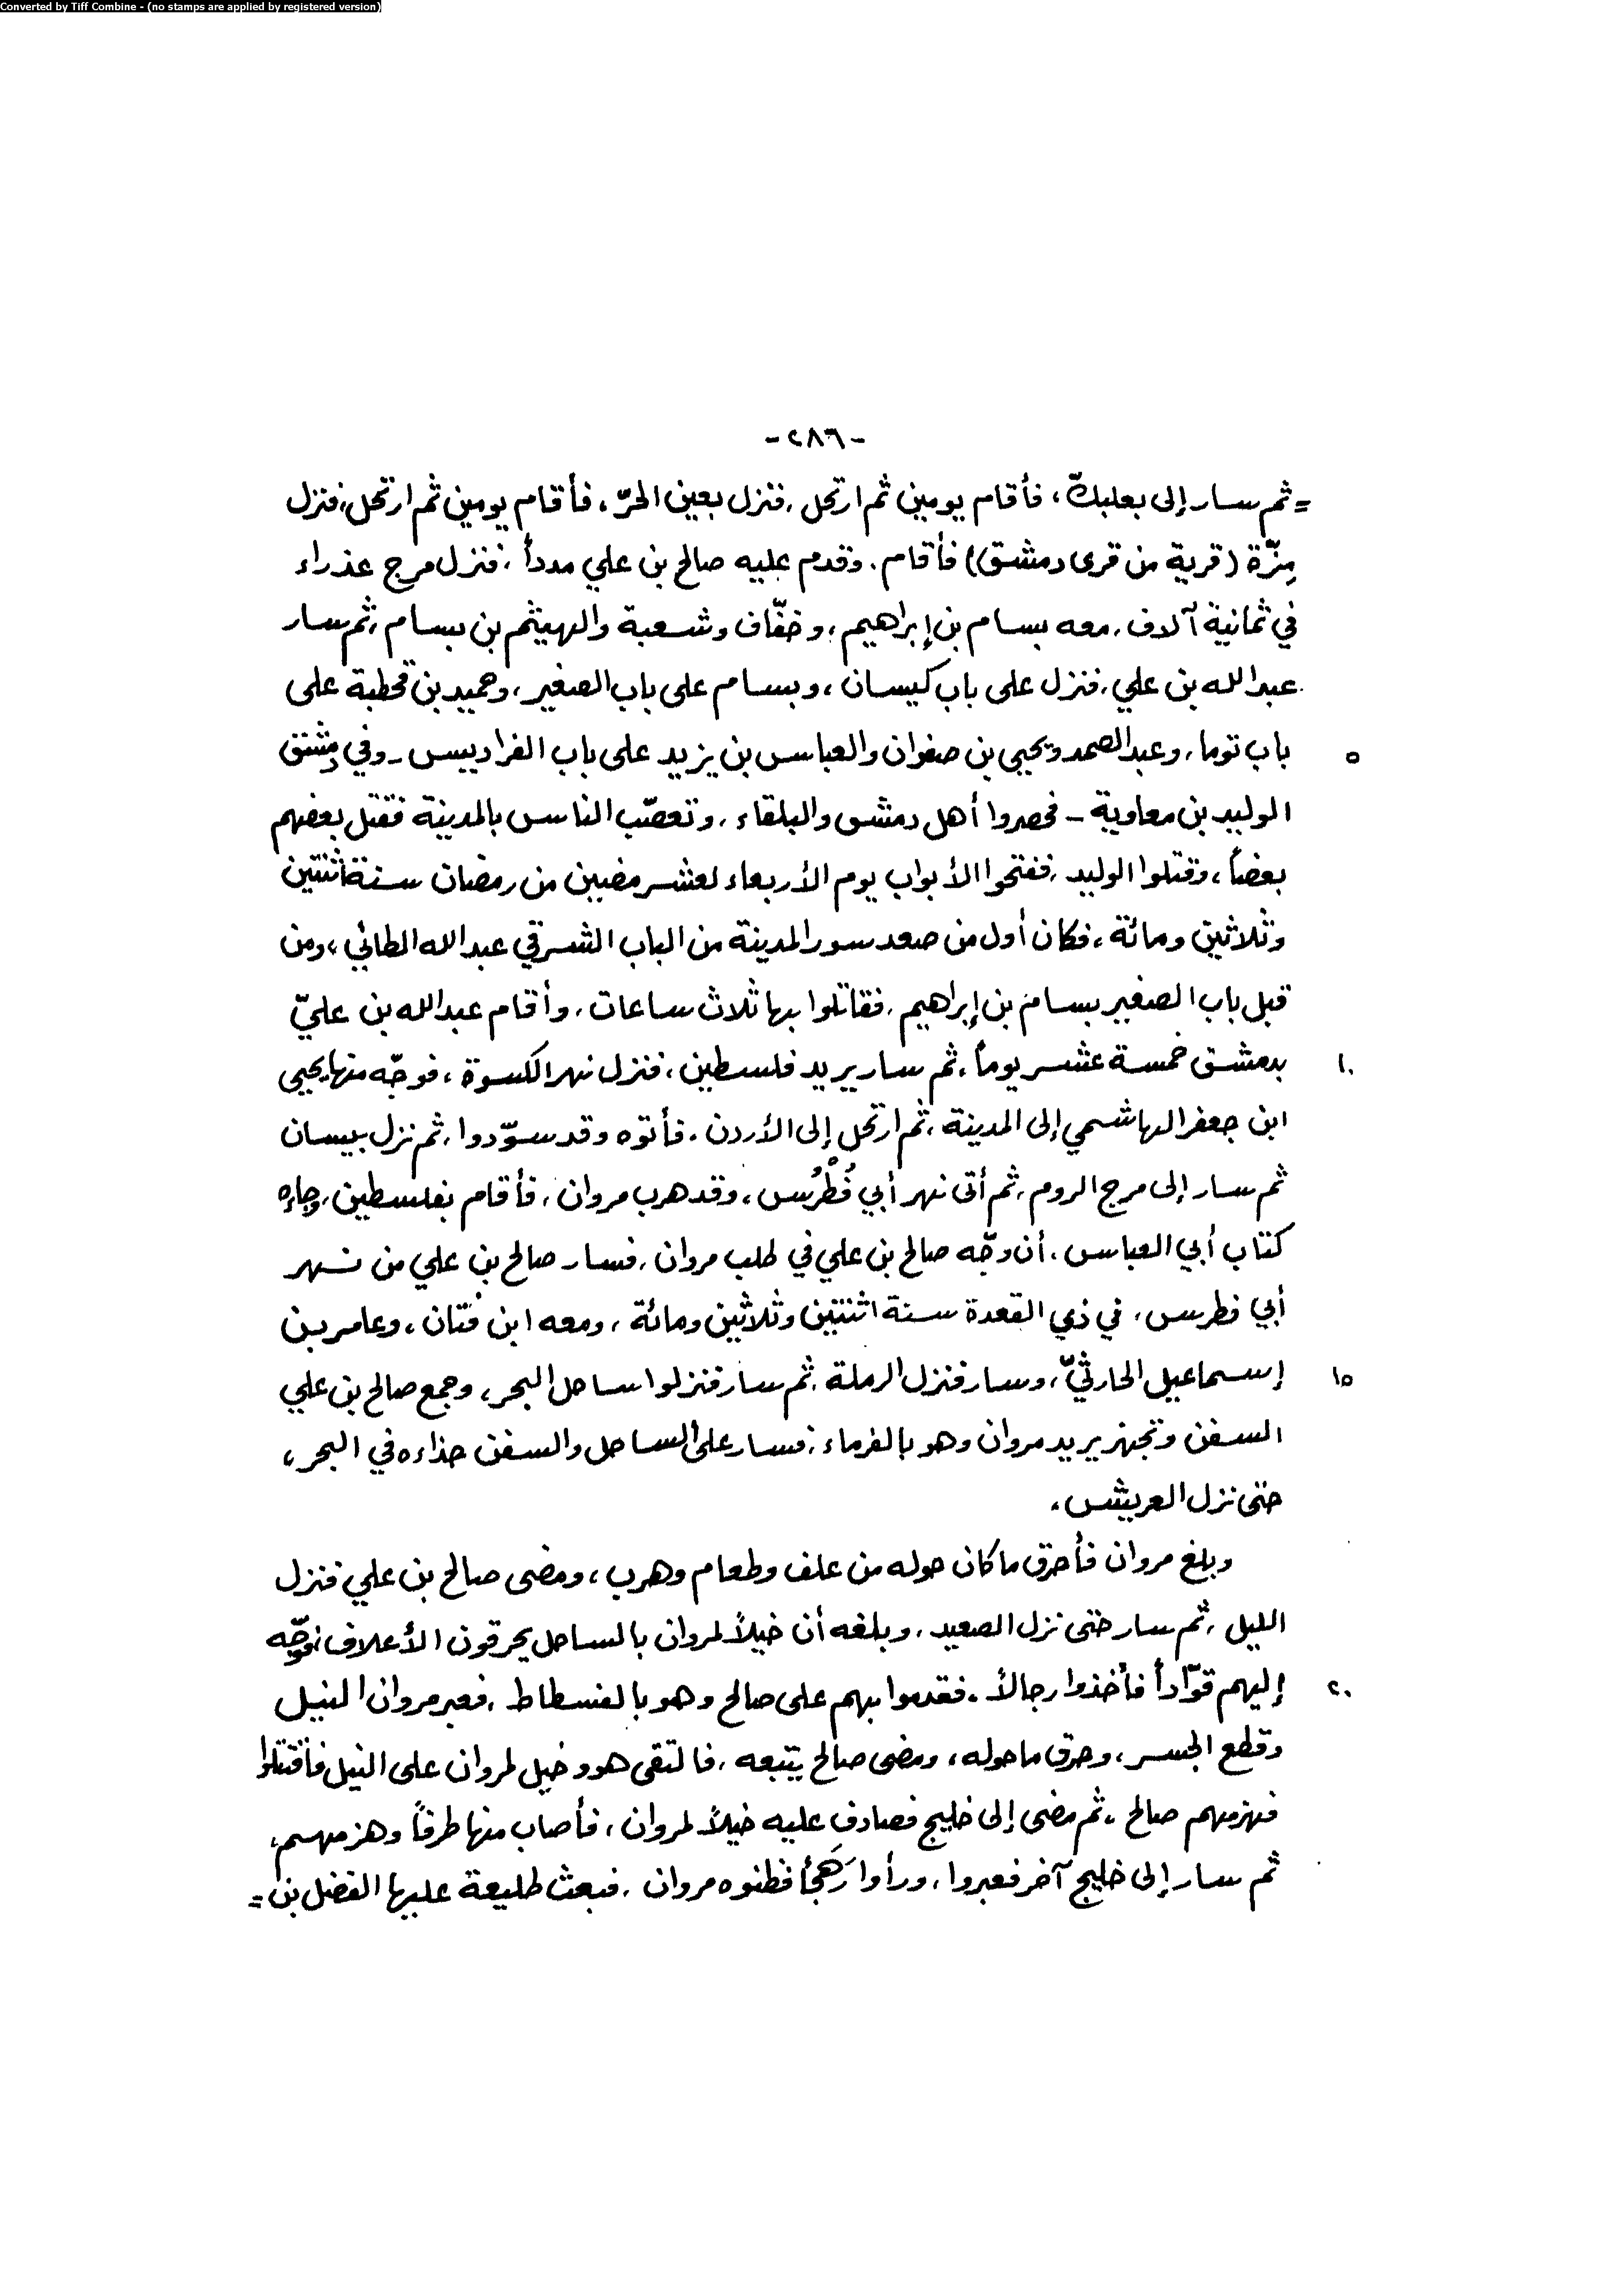 Converted by Tiff Combine - (no stamps are applied by registered version)
-٢٨٦-
= ثم سار إلى بعلبكّ، فأقام يومين ثم ارتحل، فنزل بعين الحرّ، فأقام يومين ثم ارتحل، فنزل
مِزّة (قرية من قرى دمشق)) فأقام. وقدم عليه صالح بن علي مدداً، فنزل مرج عذراء
في ثمانية آلاف، معه بسام بن إبراهيم، وخفّاف وشعبة والهيثم بن بسام، ثم سار
عبد الله بن علي، فنزل على باب كيسان، وبسام على باب الصغير، وحميد بن قحطبة على
٥ باب توما، وعبد الصمد ويحيى بن صفوان والعباس بن يزيد على باب الفراديس - وفي دمشق
الوليد بن معاوية - فحصروا أهل دمشق والبلقاء، وتعصّب الناس بالمدينة فقتل بعضهم
بعضاً، وقتلوا الوليد، ففتحوا الأبواب يوم الأربعاء لعشر مضين من رمضان سنة اثنتين
وثلاثين ومائة، فكان أول من صعد سور المدينة من الباب الشرقي عبد الله الطائي، ومن
قبل باب الصغير بسام بن إبراهيم، فقاتلوا بها ثلاث ساعات، وأقام عبد الله بن عليّ
١٠ بدمشق خمسة عشر يوماً، ثم سار يريد فلسطين، فنزل نهر الكسوة، فوجّه منها يحيى
ابن جعفر الهاشمي إلى المدينة، ثم ارتحل إلى الأردن، فأتوه وقد سوّدوا، ثم نزل بيسان
ثم سار إلى مرج الروم، ثم أتى نهر أبي فُطْرُس، وقد هرب مروان، فأقام بفلسطين، وجاءه
كتاب أبي العباس، أن وجّه صالح بن علي في طلب مروان، فسار صالح بن علي من نهر
أبي فطرس، في ذي القعدة سنة اثنتين وثلاثين ومائة، ومعه ابن فتان، وعامر بن
١٥ إسماعيل الحارثيّ، وسار فنزل الرملة، ثم سار فنزلوا ساحل البحر، وجمع صالح بن علي
السفن وتجهز يريد مروان وهو بالفرماء، فسار على الساحل والسفن حذاءه في البحر،
حتى نزل العريش.
وبلغ مروان فأحرق ما كان حوله من علف وطعام وهرب، ومضى صالح بن علي فنزل
الليل، ثم سار حتى نزل الصعيد، وبلغه أن خيلاً لمروان بالساحل يحرقون الأعلاف، فوجّه
٢٠ إليهم قوّاداً فأخذوا رجالاً، فقدموا بهم على صالح وهو بالفسطاط، فعبر مروان النيل
وقطع الجسر، وحرق ما حوله، ومضى صالح يتبعه، فالتقى هو وخيل لمروان على النيل فاقتتلوا
فهزمهم صالح، ثم مضى إلى خليج فصادف عليه خيلاً لمروان، فأصاب منها طرفاً وهزمهم،
ثم سار إلى خليج آخر فعبروا، ورأوا رَهَجاً فظنوه مروان، فبعث طليعة عليها الفضل بن =